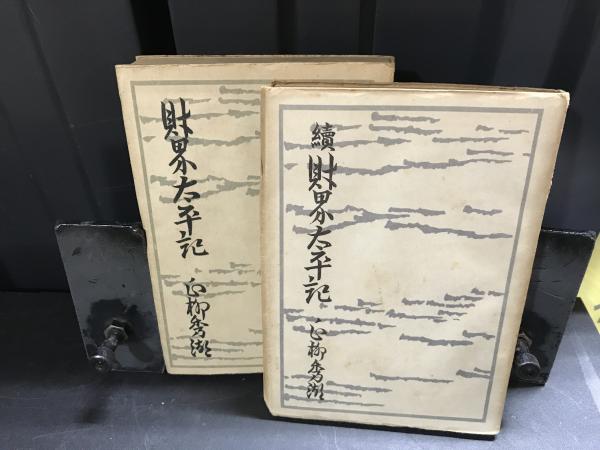 財界太平記
白柳秀湖
續財界太平記
白柳秀湖